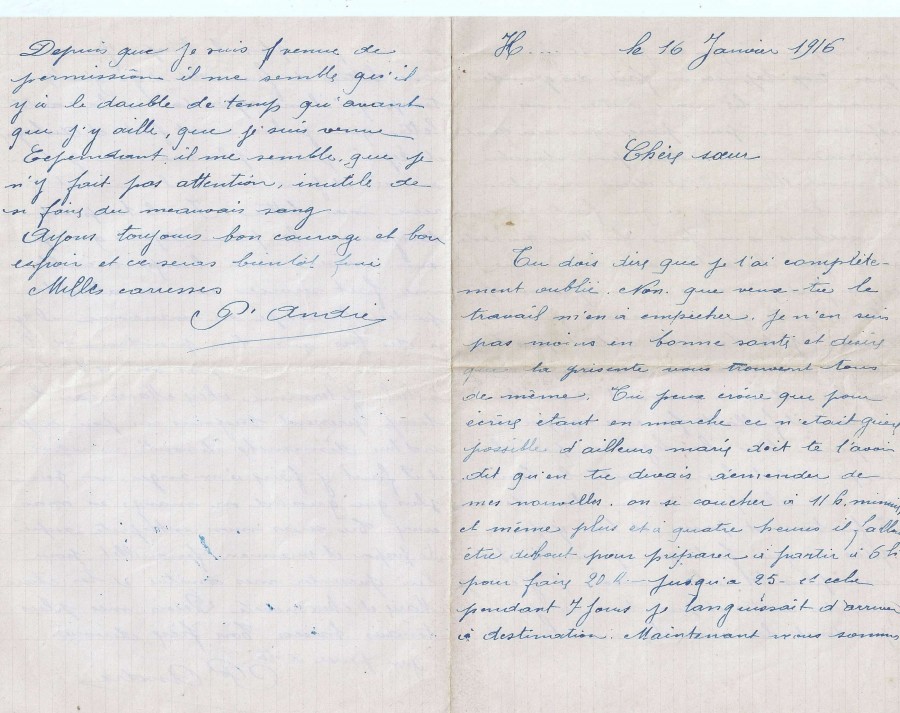 H.... le 16 Janvier 1916
Chère sœur
Tu dois dire que je t'ai complète-
ment oublié. Non. que veux-tu le
travail m'en à empècher. je n'en suis
pas moins en bonne santé et désire
que la présente vous trouvent tous
de même. Tu peux croire que pour
écrire étant en marche ce n'était guère
possible d'ailleurs marie doit te l'avoir
dit qu'en tu devais demender de
mes nouvelles. on se coucher à 11 h. minuit
et même plus et à quatre heures il falla
être debout pour préparer à partir à 6 h
pour faire 20 k jusqu'à 25 - et cela
pendant 7 jours je languissait d'arriver
à destination. Maintenant nous sommes
Depuis que je suis venue de
permission il me semble qu'il
y à le double de temps qu'avant
que j'y aille, que je suis venue
Ecependant il me semble, que je
n'y fait pas attention, inutile de
faire du meauvais sang
Ayons toujours bon courage et bon
espoir et ce seras bientôt fini
Milles carresses
André